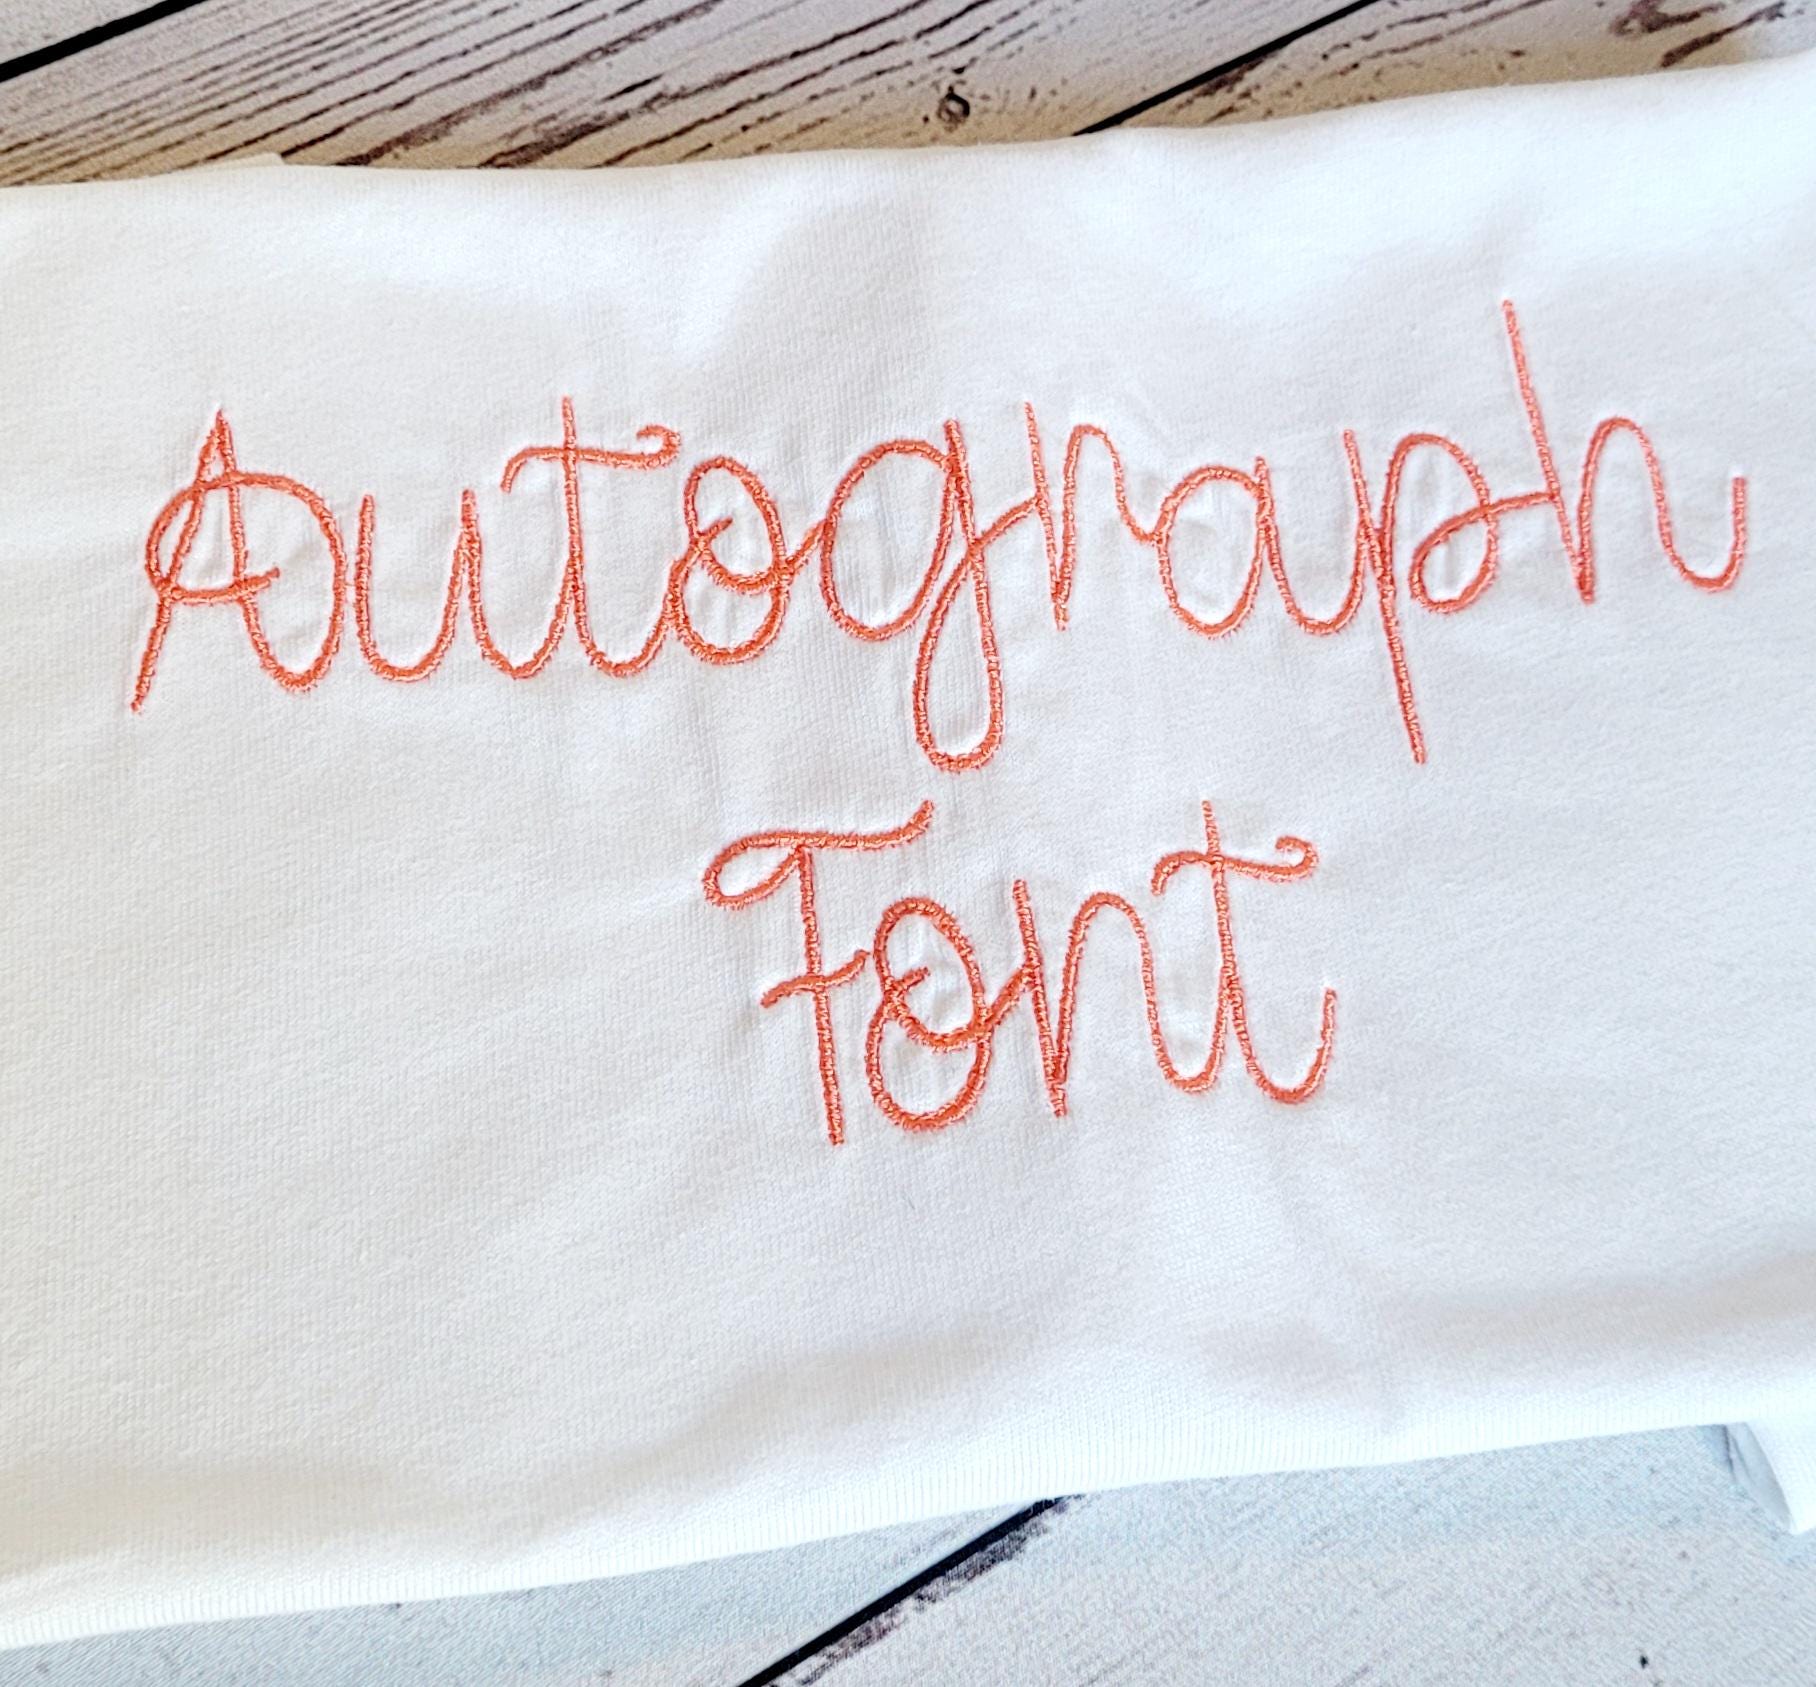 Autograph
Font